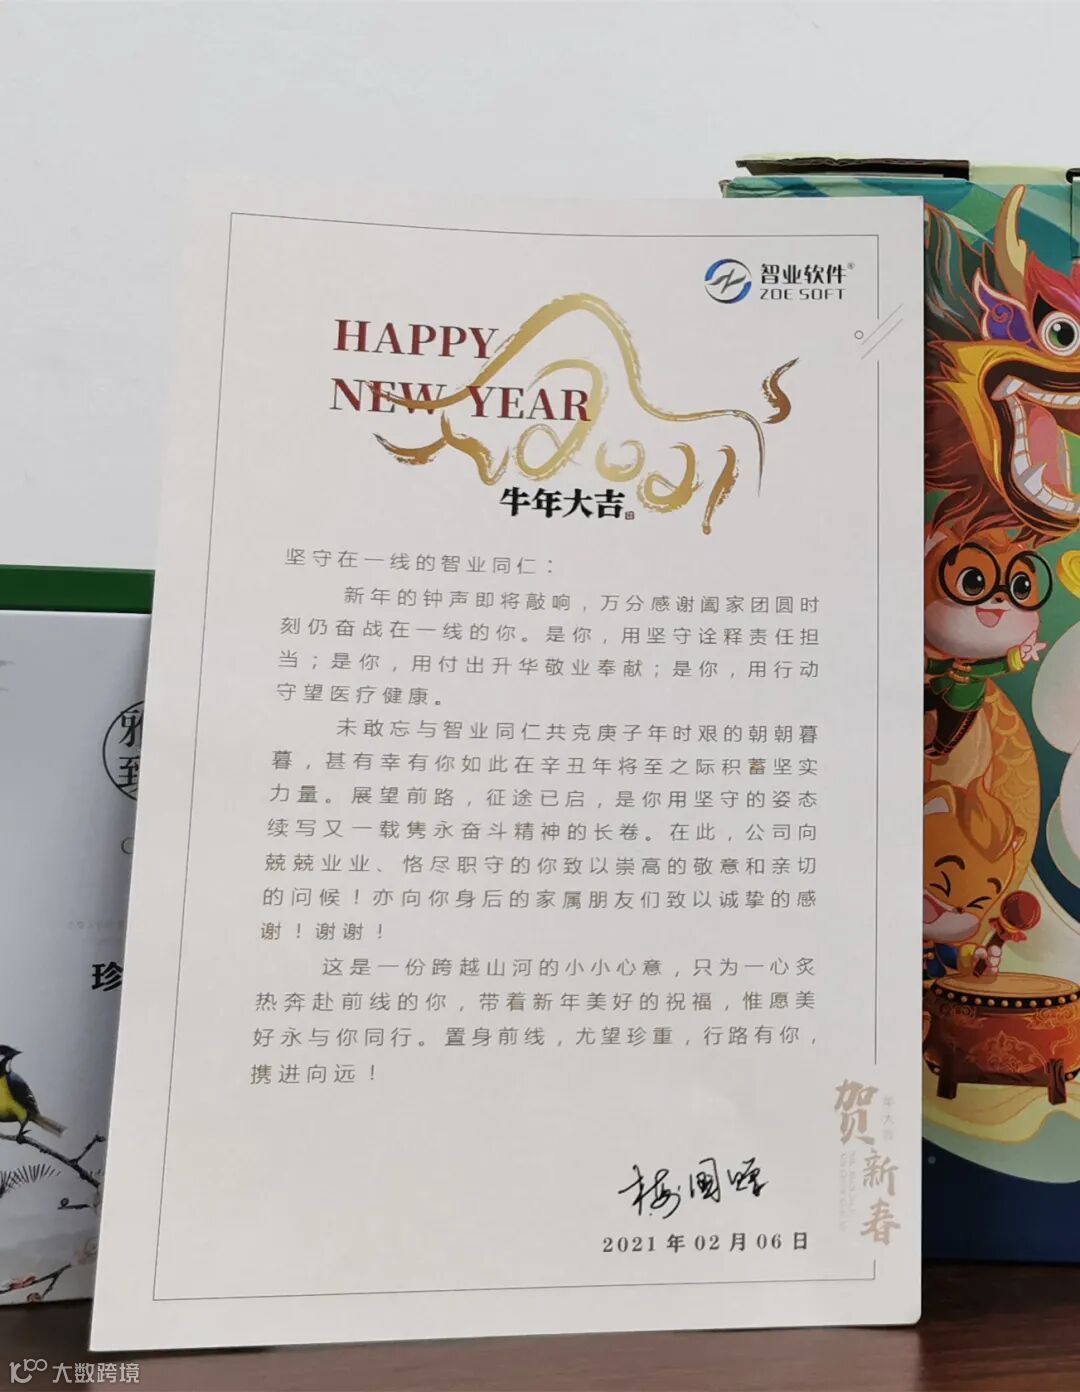 智业软件®
ZOE SOFT
HAPPY
NEW YEAR
2021
牛年大吉
坚守在一线的智业同仁：
新年的钟声即将敲响，万分感谢阖家团圆时
刻仍奋战在一线的你。是你，用坚守诠释责任担
当；是你，用付出升华敬业奉献；是你，用行动
守望医疗健康。
未敢忘与智业同仁共克庚子年时艰的朝朝暮
暮，甚有幸有你如此在辛丑年将至之际积蓄坚实
力量。展望前路，征途已启，是你用坚守的姿态
续写又一载隽永奋斗精神的长卷。在此，公司向
兢兢业业、恪尽职守的你致以崇高的敬意和亲切
的问候！亦向你身后的家属朋友们致以诚挚的感
谢！谢谢！
这是一份跨越山河的小小心意，只为一心炙
热奔赴前线的你，带着新年美好的祝福，惟愿美
好永与你同行。置身前线，尤望珍重，行路有你，
携进向远！
贺新春
2021年02月06日
珍
大数跨境